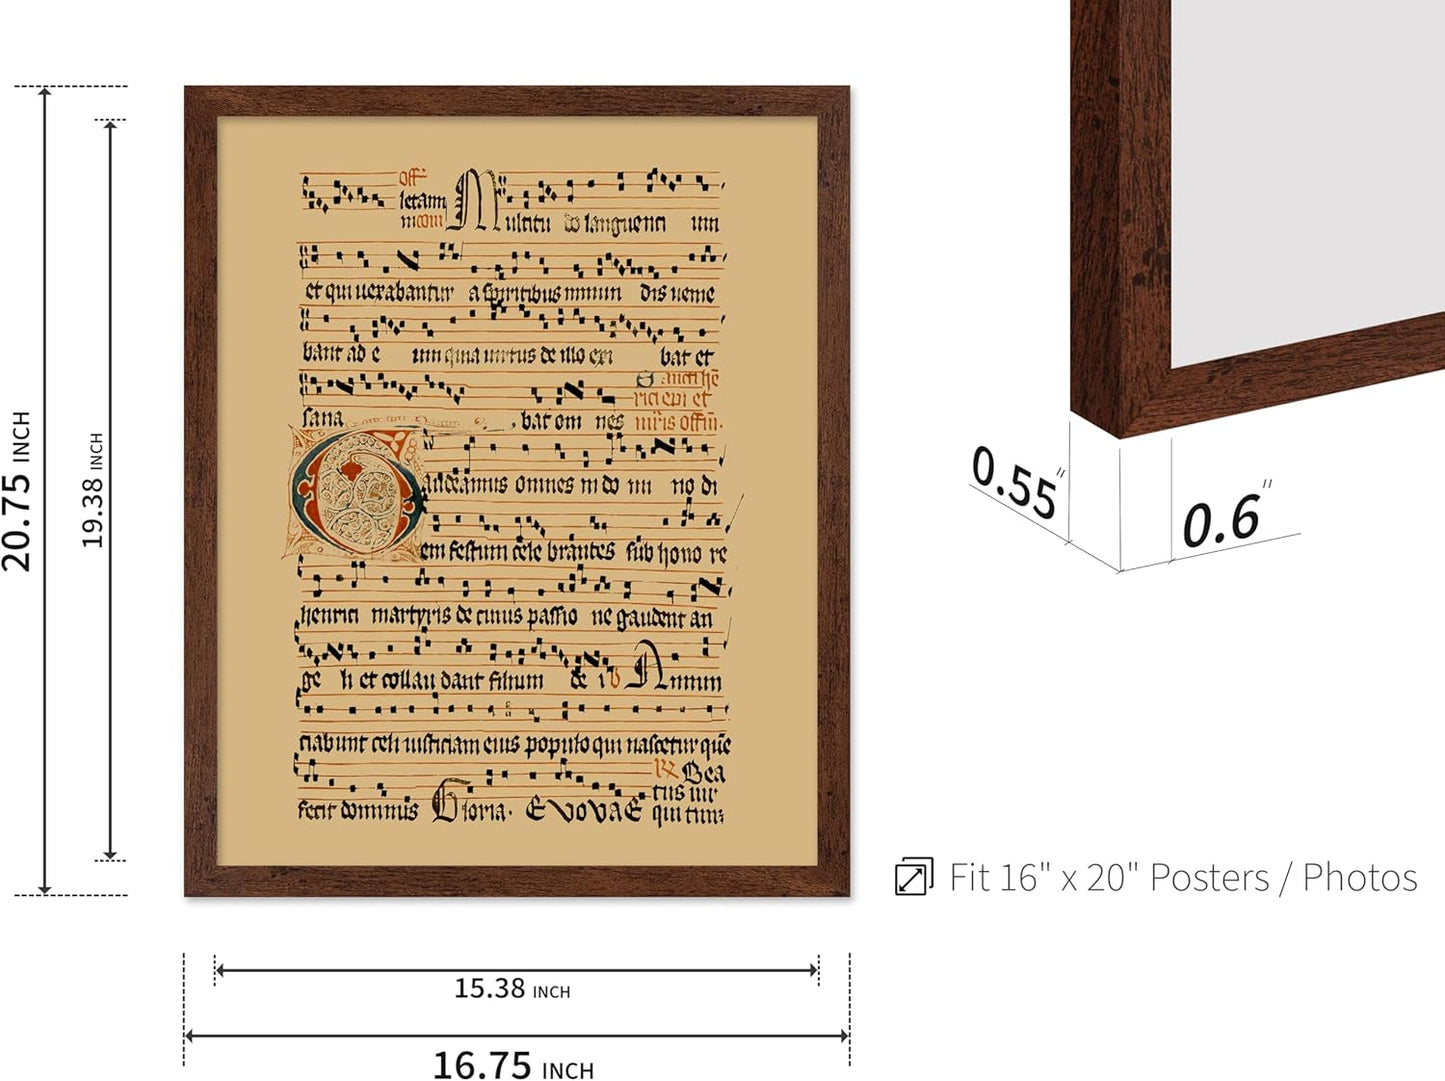 off
letam
Multitu do languenti um
et qui vexabantur a spiritibus inmun dis veme
bant ad e um quia virtus de illo exi bat et
Sancti hē
rici epi et
sana bat om nes mr̄is offm̄.
Gaudeamus omnes in do mi no di
em festum cele brantes sub hono re
henrici martyris de cuius passio ne gaudent an
ge li et collau dant filium de i Annun
ciabunt celi iusticiam eius populo qui nascetur quē
Bea
tus vir
fecit dominus Gloria. EVOVAE qui tim
20.75 INCH
19.38 INCH
15.38 INCH
16.75 INCH
0.55"
0.6"
Fit 16" x 20" Posters / Photos